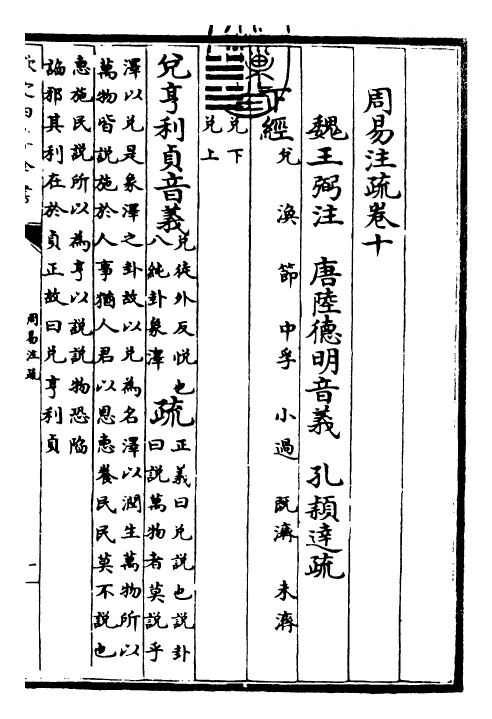 周易注疏卷十
魏王弼注 唐陸德明音義 孔頴達疏
下經 兌 渙 節 中孚 小過 既濟 未濟
兌下
兌上
兌亨利貞音義
兌徒外反悅也
八純卦象澤
疏
正義曰兌說也說卦
曰說萬物者莫說乎
澤以兌是象澤之卦故以兌為名澤以潤生萬物所以
萬物皆說施於人事猶人君以恩惠養民民莫不說也
惠施民說所以為亨以說說物恐陷
諂邪其利在於貞正故曰兌亨利貞
周易注疏
一